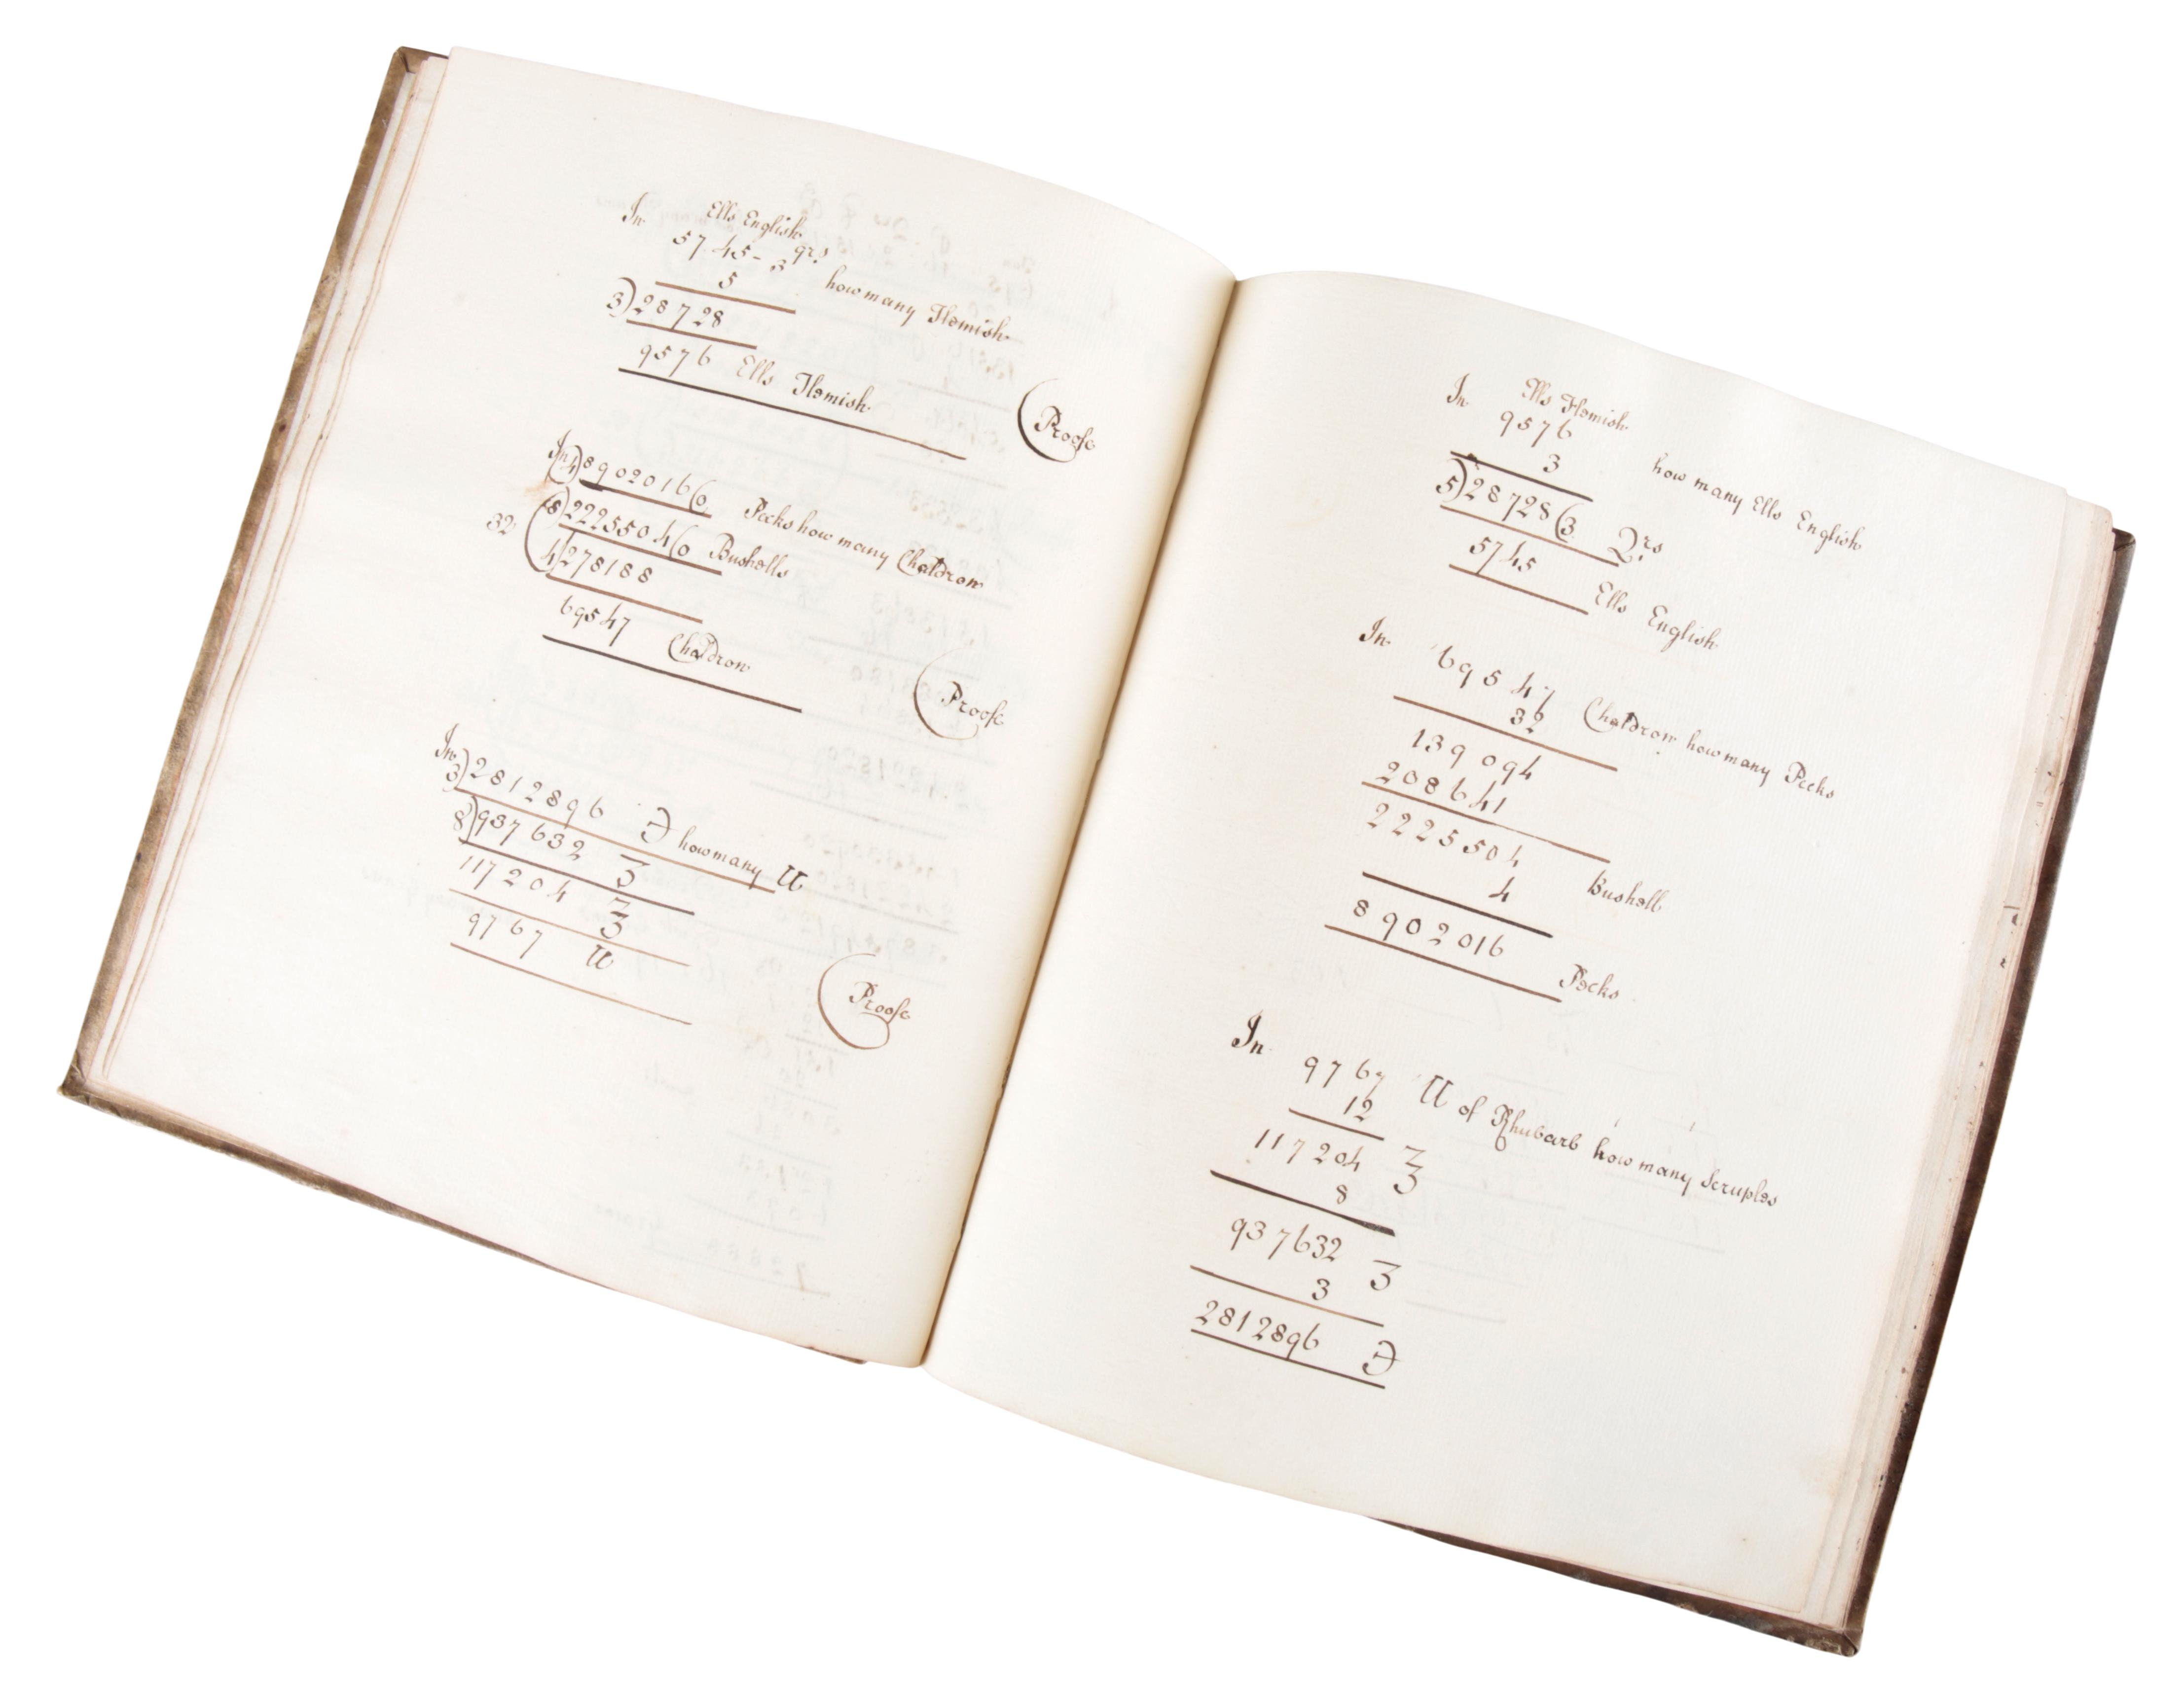 In Ells English
5745-3 qrs
5 how many Flemish
3)28728
9576 Ells Flemish
(Proofe
In 4)8902016(0 Pecks how many Chaldron
32 (8)2225504(0 Bushells
4)278188
69547 Chaldron
(Proofe
In
3)2812896 ℈ how many ℔
8)937632 ʒ
117204 ℥
9767 ℔
(Proofe
In Ells Flemish
9576
3 how many Ells English
5)28728(3 Qrs
5745 Ells English
In 69547 Chaldron how many Pecks
32
139094
208641
2225504 Bushell
4
8902016 Pecks
In 9767 ℔ of Rhubarb how many Scruples
12
117204 ℥
8
937632 ʒ
3
2812896 ℈